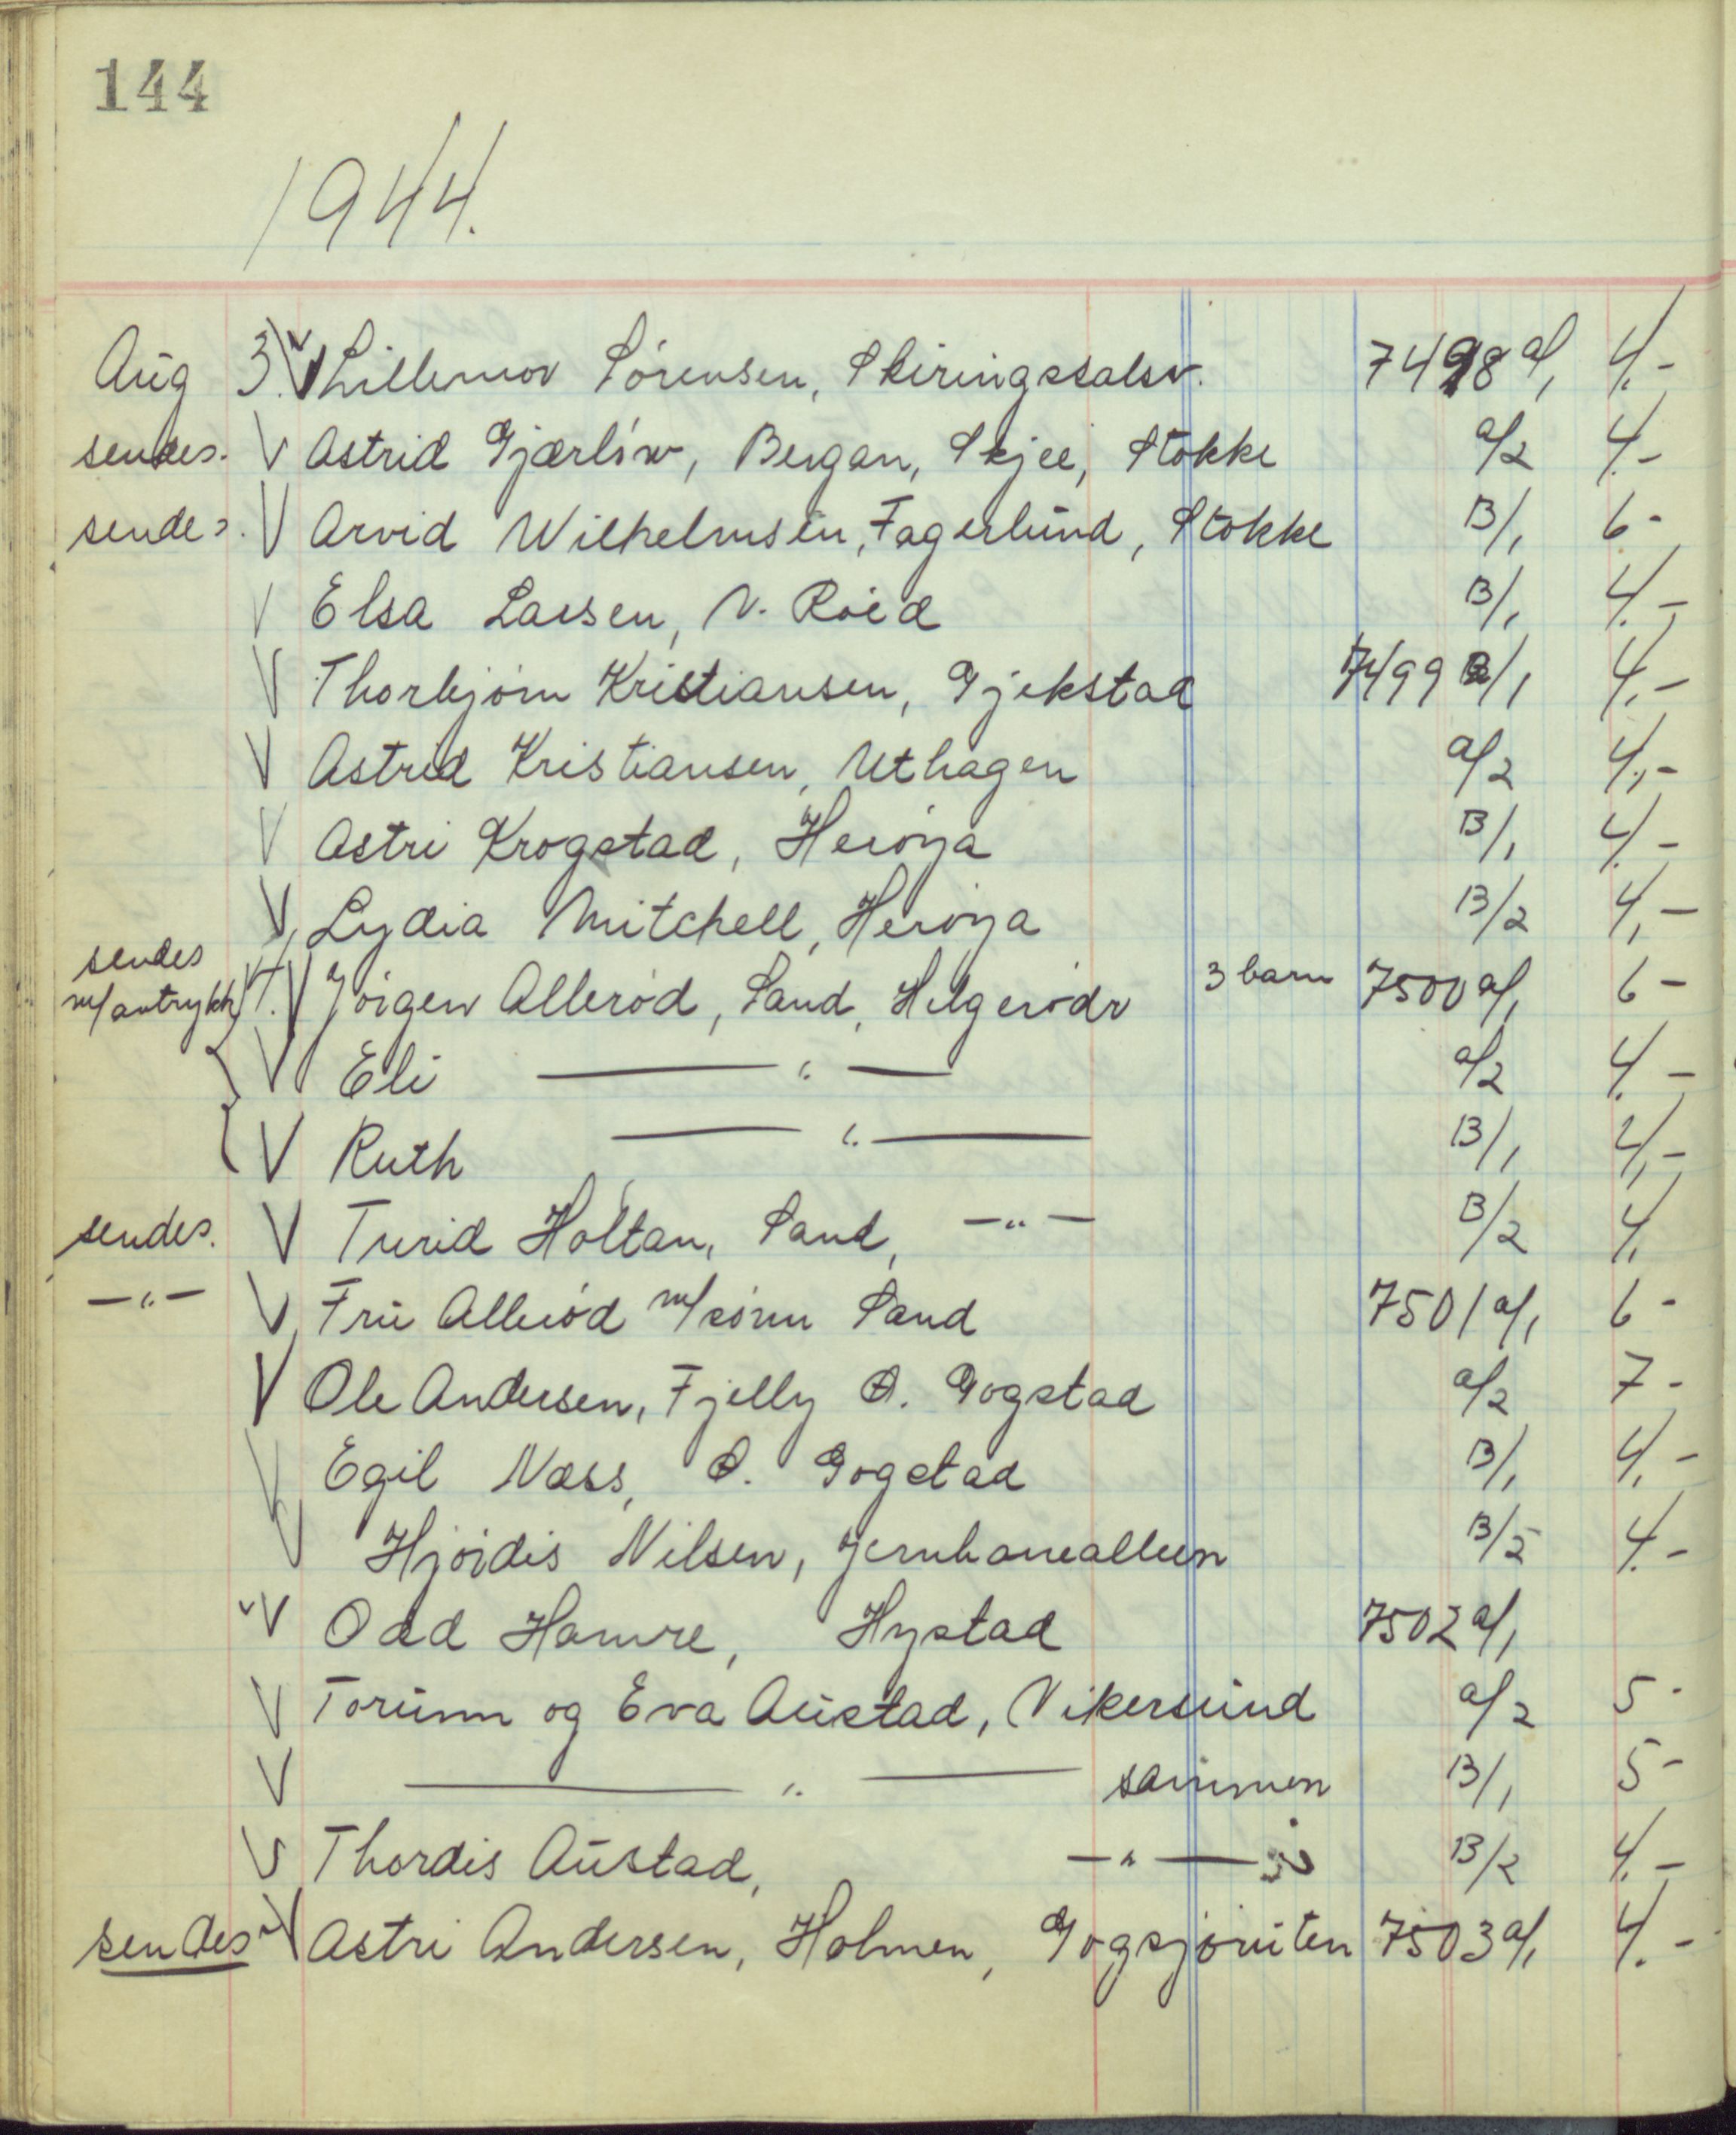 144
1944.
Aug 3. V Lillemor Sørensen, Skiringssalsv. 7498 a/1 4.-
sendes. V Astrid Gjærløw, Bergan, Skjee, Stokke a/2 4.-
sendes. V Arvid Wilhelmsen, Fagerlund, Stokke B/1 6-
V Elsa Larsen, V. Røed B/1 4.-
V Thorbjørn Kristiansen, Gjekstad 7499 B/1 4.-
V Astrid Kristiansen, Uthagen a/2 4,-
V Astri Krogstad, Herøya B/1 4.-
V Lydia Mitchell, Herøya B/2 4,-
sendes
m/avtrykk 4. V Jørgen Allerød, Sand, Helgerødv 3 barn 7500 a/1 6-
V Eli —〃— a/2 4.-
V Ruth —〃— B/1 4,-
sendes. V Turid Holtan, Sand, -〃- B/2 4.
-〃- V Fru Allerød m/sønn Sand 7501 a/1 6-
V Ole Andersen, Fjelly Ø. Gogstad a/2 7-
V Egil Næss, Ø. Gogstad B/1 4.-
V Hjørdis Nilsen, Jernbanealleen B/2 4.-
V Odd Hamre, Hystad 7502 a/1
V Torunn og Eva Austad, Vikersund a/2 5-
V —〃— sammen B/1 5-
V Thordis Austad, -〃- B/2 4.-
sendes V Astri Andersen, Holmen, Gogsjøruten 7503 a/1 4.-